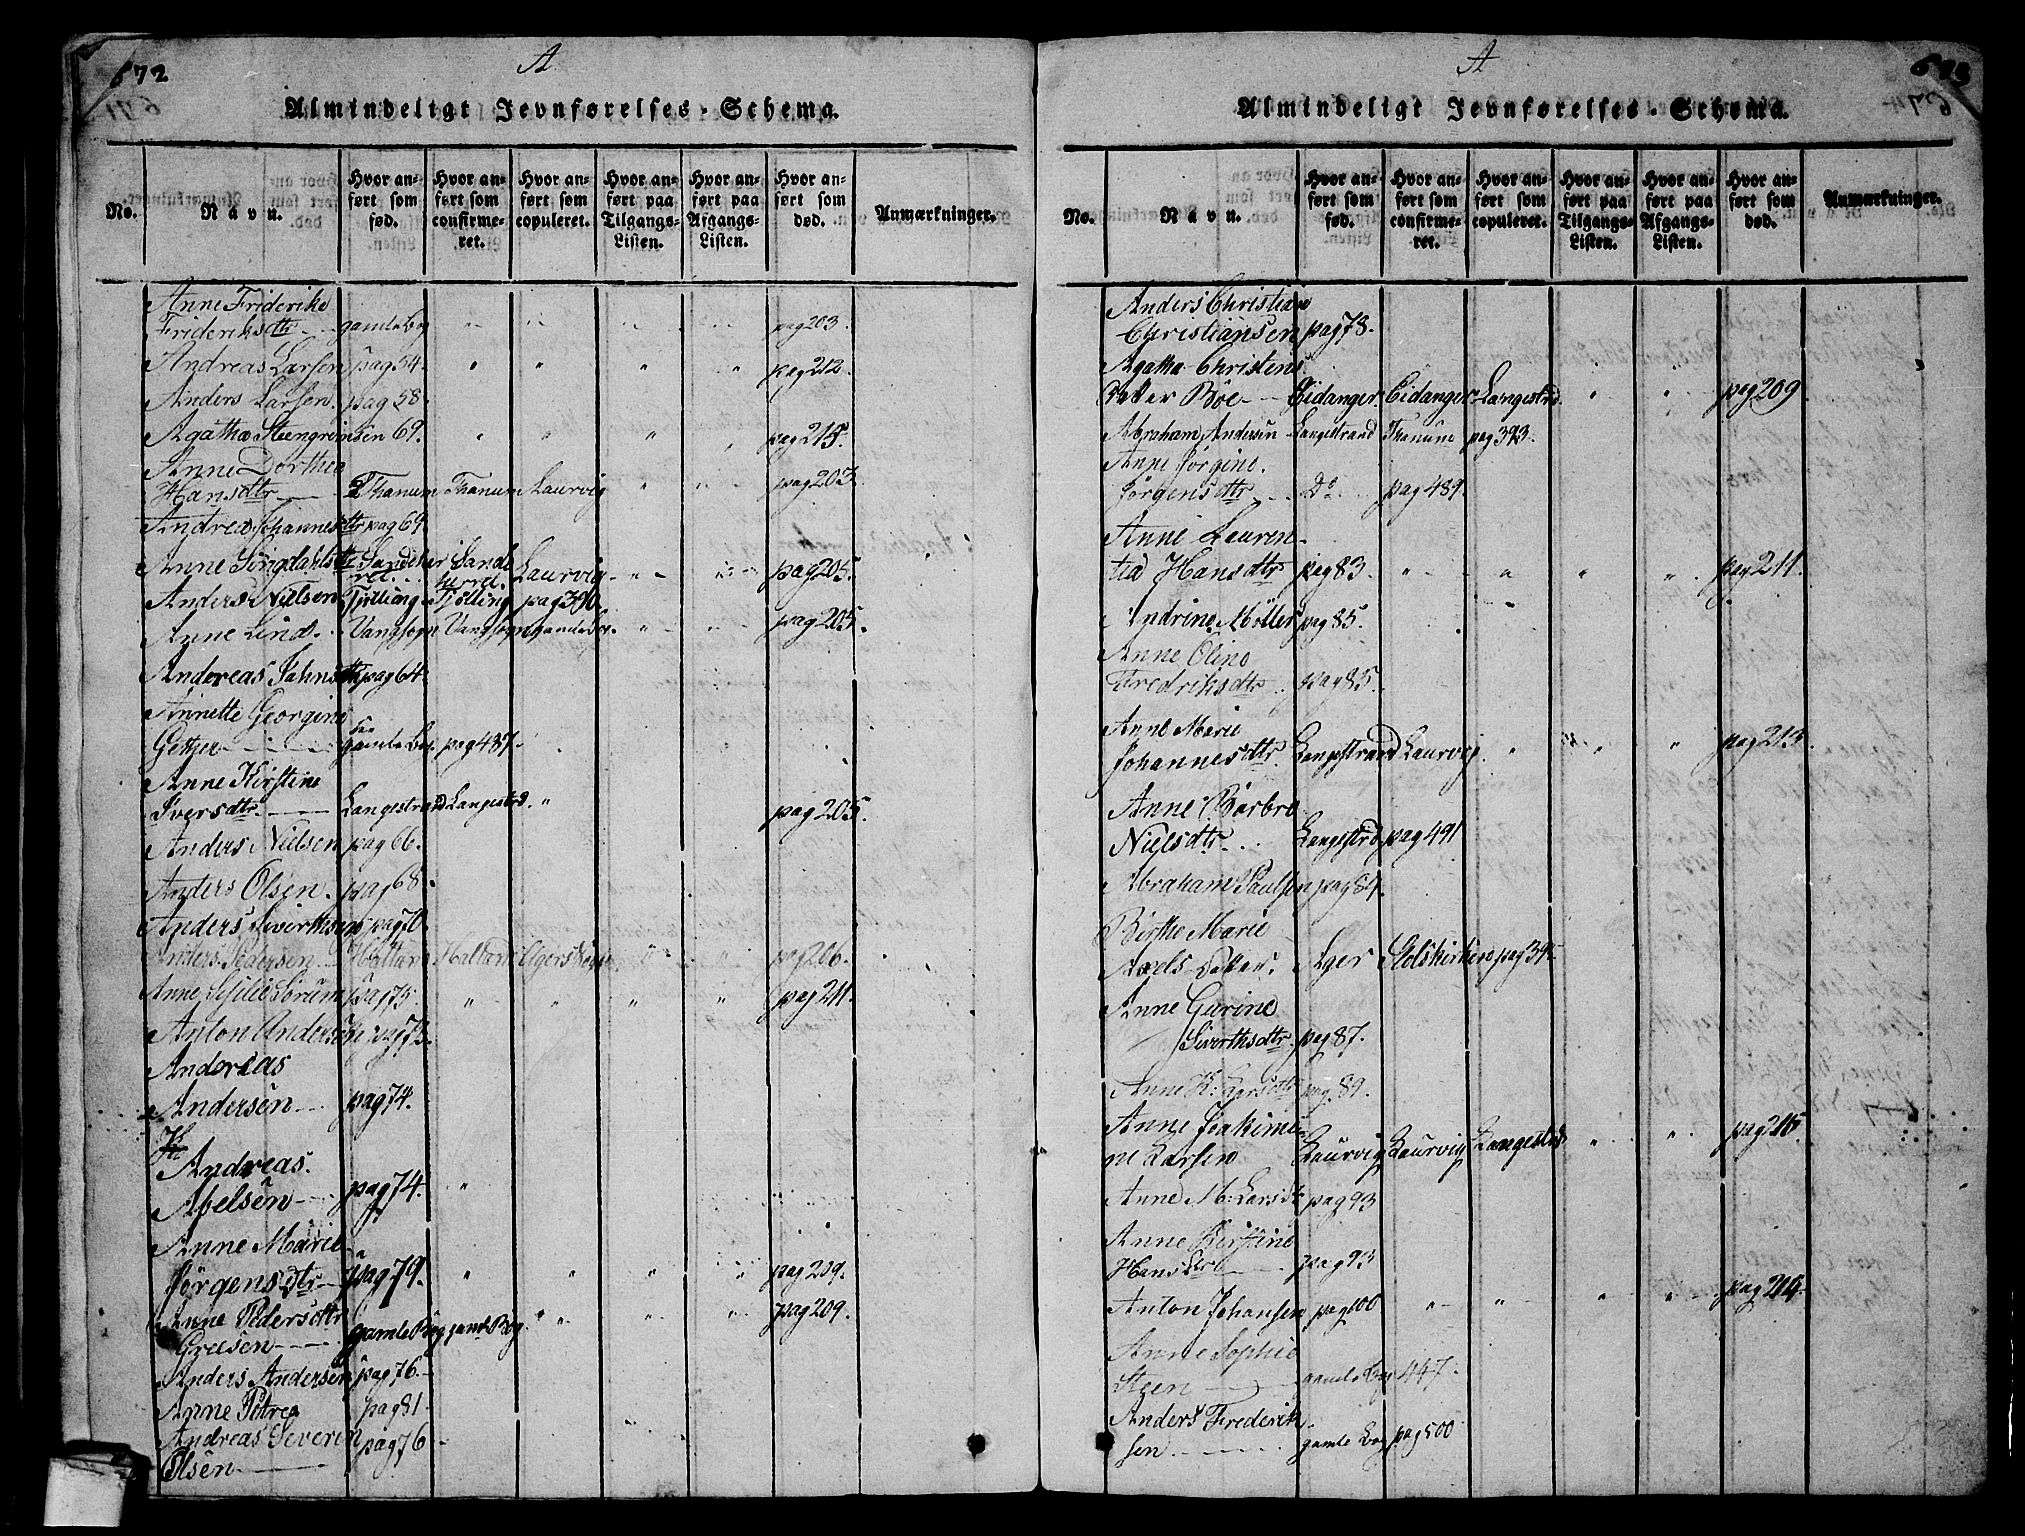 672
A
Almindeligt Jevnførelses-Schema.
No.
Navn.
Hvor anført som fød.
Hvor anført som confirmeret.
Hvor anført som copuleret.
Hvor anført paa Tilgangs-Listen.
Hvor anført paa Afgangs-Listen.
Hvor anført som død.
Anmærkninger.
Anne Friderike
Frideriksdtr gamle Bog pag 203.
Andreas Larsen pag 54. " " " " pag 212.
Anders Larsen. pag 58.
Agathe Steengrimsen 69. " " " " pag 215.
Anne Dorthea
Hansdtr Thanum Thanum Laurvig " " pag 203.
Andrea Johannesdtr pag 69.
Anne Laurvig " pag 205.
Anders Nielsen Tjølling Tjølling pag 390.
Anne Lind. Vangsogn Vangsogn " pag 205.
Andreas Jahnsen pag 64.
Annette Georgine
Gether gamle Bog pag 487.
Anne Kirstine
Iversdtr. Langestrand Langestrd. " pag 205.
Anders Nielsen pag 66.
Anders Olsen. pag 68.
Anders Siverthsen pag 70.
Anders Pedersen " " pag 206.
Anne Sørum pag 75. " " " " pag 211.
Anton Andersen pag 73.
Andreas
Andersen pag 74.
Andreas.
Abelsen pag 74. "
Anne Marie
Jørgensdtr pag 79. " " " " pag 209.
Anne Pedersdtr
gamle Bog gaml Bog " " " pag 209.
Anders Andersen pag 76.
Anne Petrea pag 81.
Andreas Severin pag 76
Olsen
A
Almindeligt Jevnførelses-Schema.
No.
Navn.
Hvor anført som fød.
Hvor anført som confirmeret.
Hvor anført som copuleret.
Hvor anført paa Tilgangs-Listen.
Hvor anført paa Afgangs-Listen.
Hvor anført som død.
Anmærkninger.
Anders Christian
Christiansen pag 78.
Agathe Christens
Datter Böe Eidanger. Eidanger Langestrd. " " pag 209
Abraham Andersen Langestrand Thanum pag 393.
Anne Jørgine.
Jørgensdtr Do pag 489.
Anne Lauren-
tia Hansdtr pag 83. " " " " pag 211.
Andrine Möller pag 85.
Anne Oline
Fredriksdtr. pag 85.
Anne Marie
Johannesdtr. Langestrand Laurvig. " " " pag 213.
Anne Barbro
Nielsdtr. Langestrd pag 491
Abraham Paulsen pag 84.
Birthe Marie
Axels Datter. Ager pag 395
Anne Gurine
Siverthsdtr. pag 87.
Anne K: Larsdtr pag. 89.
Anne Joakimi-
ne Larsen Laurvig Laurvig Langestrd " " pag 215.
Anne M: Larsdtr pag 93
Anne Kirstine
Hans Dtr pag 93
Anton Johansen pag 100 " " " " pag 214.
Anne Sophie
Steen gamle Bog 447.
Anders Frederik-
sen. gamle Bog pag 500